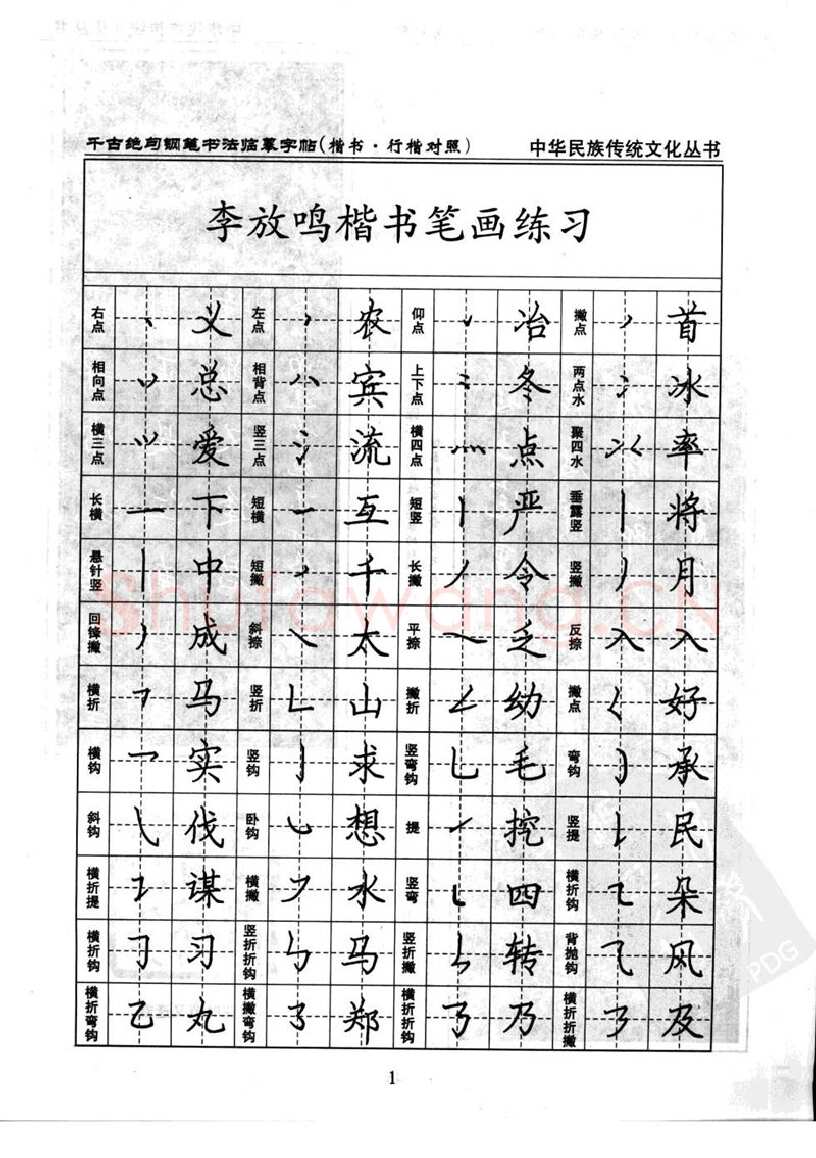 千古绝句钢笔书法临摹字帖(楷书·行楷对照) 中华民族传统文化丛书
李放鸣楷书笔画练习
右点 丶 义 左点 丶 农 仰点 丶 冶 撇点 丿 首
相向点 丷 总 相背点 八 宾 上下点 冬 两点水 冫 冰
横三点 爱 竖三点 氵 流 横四点 灬 点 聚四水 率
长横 一 下 短横 一 互 短竖 丨 严 垂露竖 丨 将
悬针竖 丨 中 短撇 丿 千 长撇 丿 令 竖撇 丿 月
回锋撇 丿 成 斜捺 ㇏ 太 平捺 ㇏ 乏 反捺 入 入
横折 ㇕ 马 竖折 ㇗ 山 撇折 ㇜ 幼 撇点 ㇛ 好
横钩 ㇖ 实 竖钩 亅 求 竖弯钩 乚 毛 弯钩 ㇁ 承
斜钩 ㇂ 伐 卧钩 ㇃ 想 提 ㇀ 挖 竖提 ㇙ 民
横折提 ㇊ 谋 横撇 ㇇ 水 竖弯 ㇄ 四 横折钩 ㇍ 朵
横折钩 ㇆ 习 竖折折钩 ㇉ 马 竖折撇 ㇞ 转 背抛钩 ⺄ 风
横折弯钩 乙 丸 横撇弯钩 ㇌ 郑 横折折折钩 ㇡ 乃 横折折撇 ㇋ 及
1
Shufawang.CN
PDG